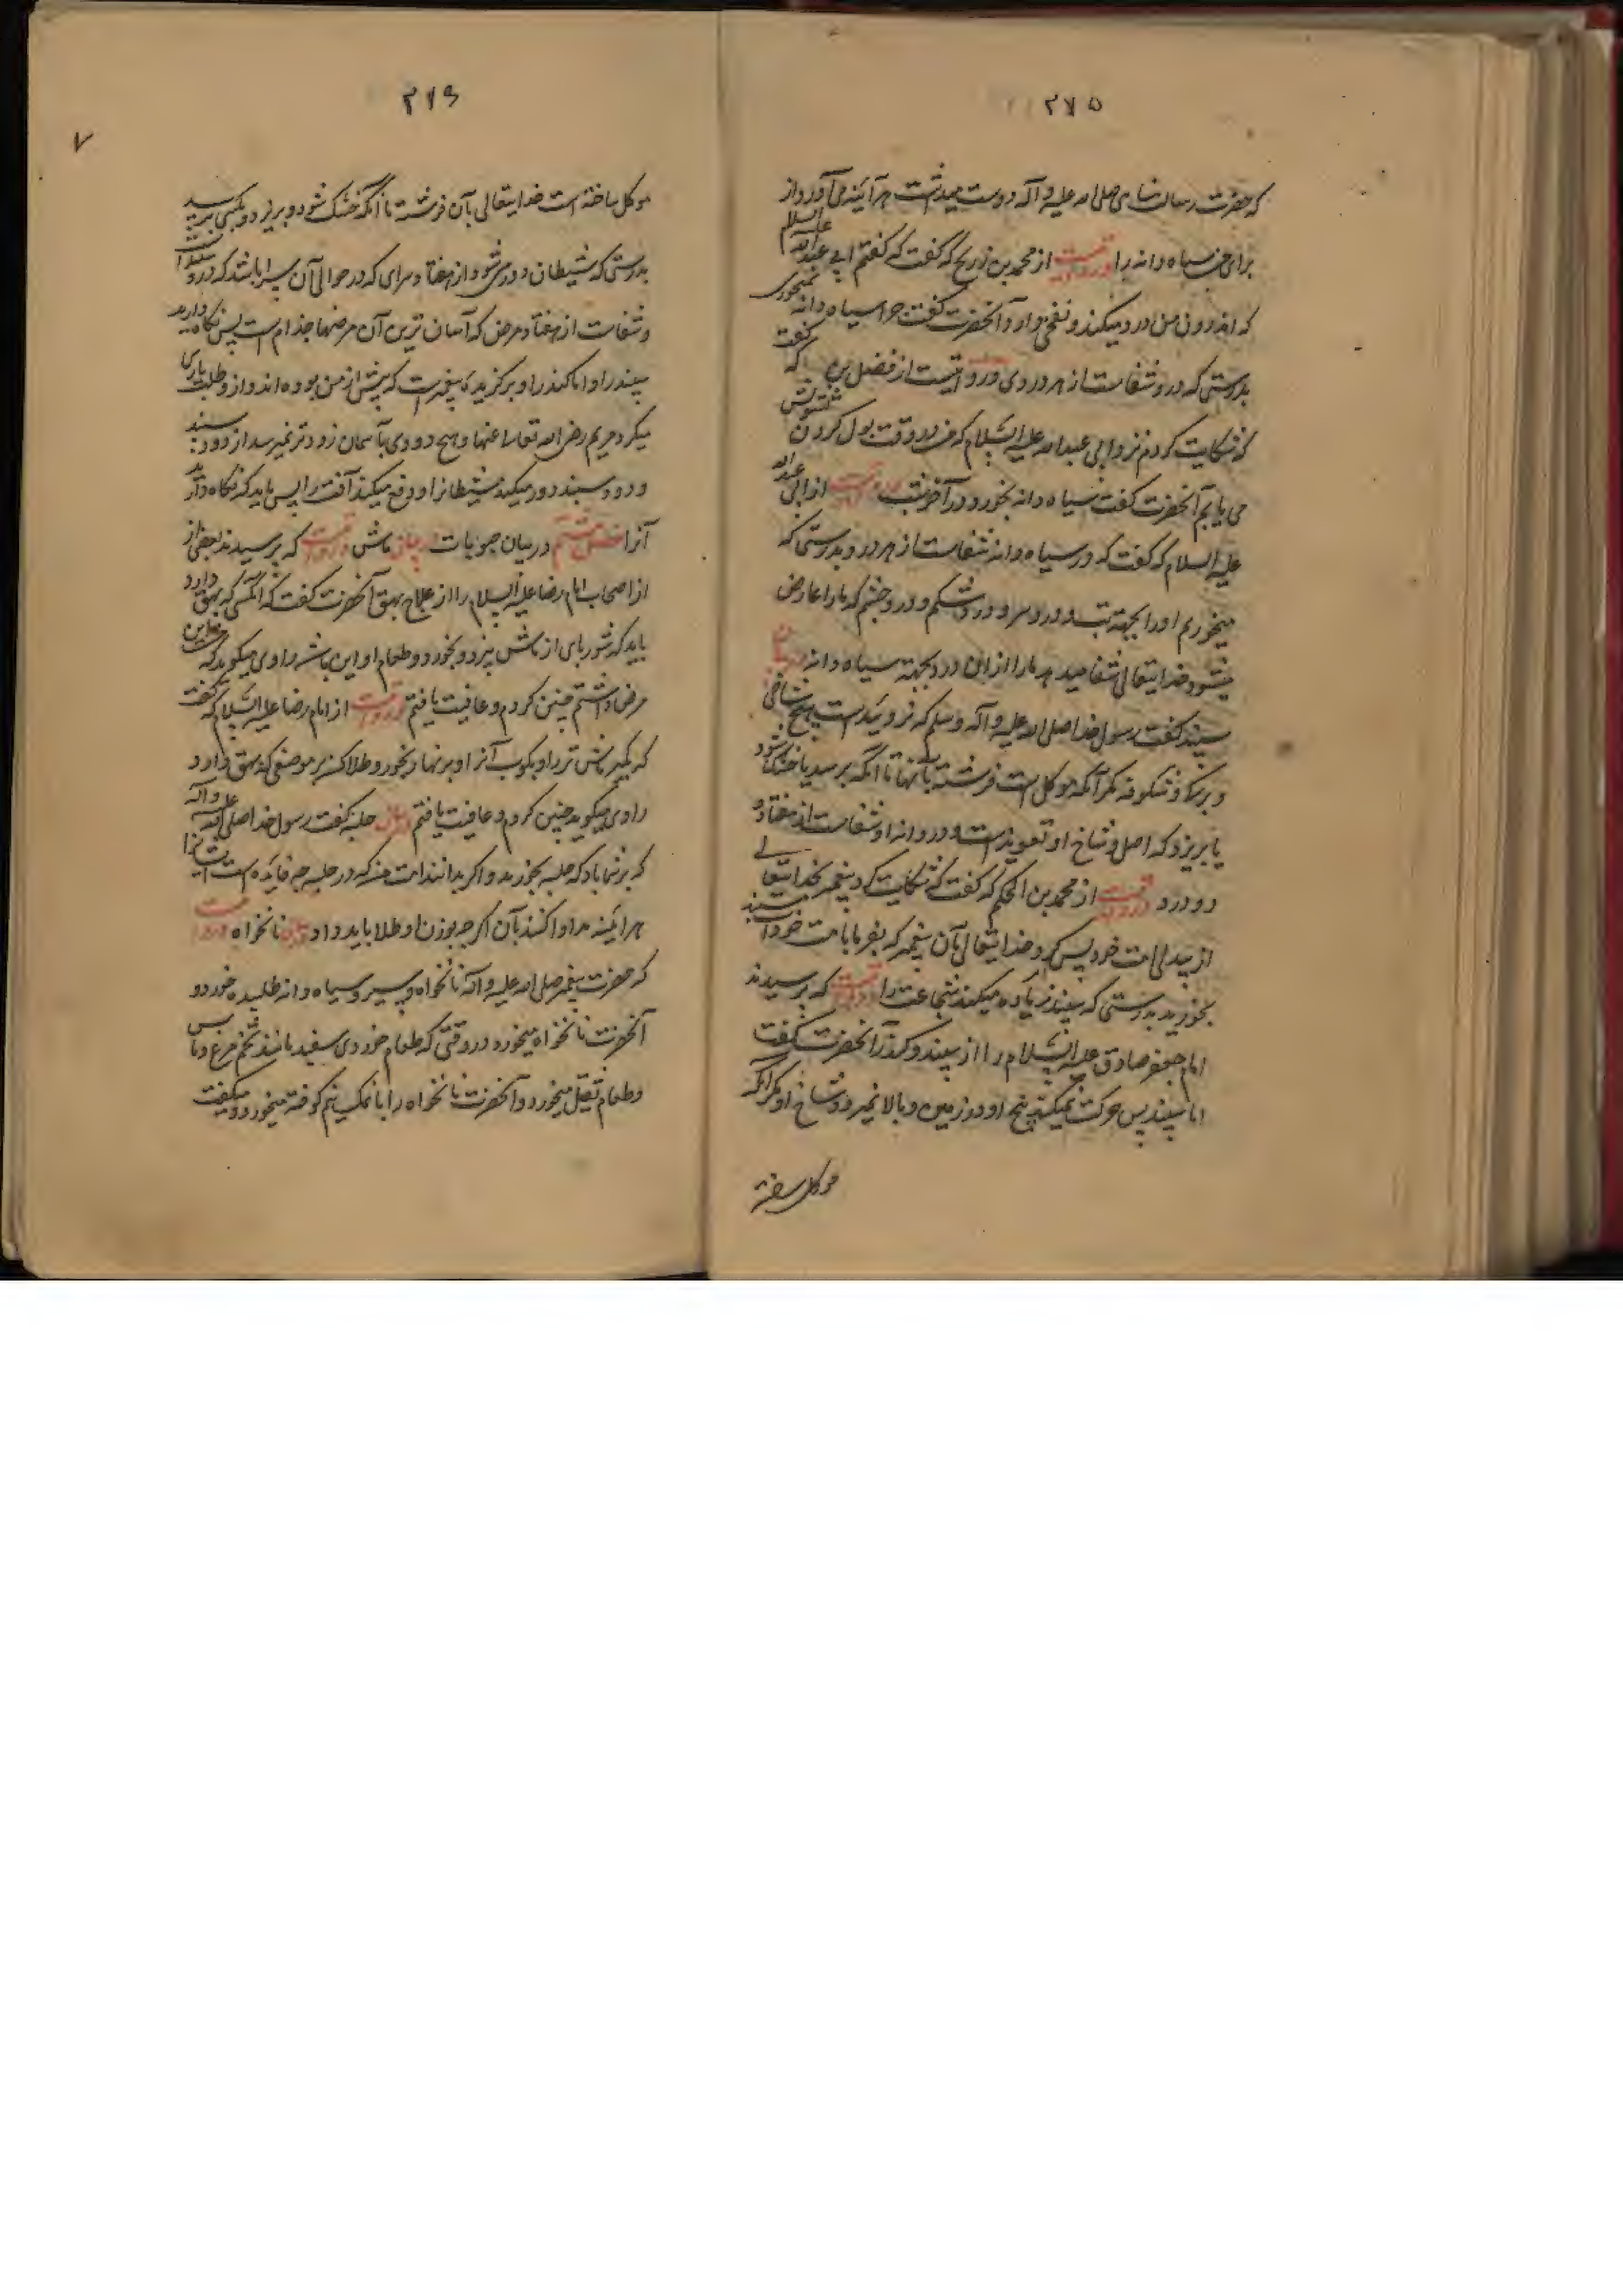 ۲۷۵
که حضرت رسالت پناهی صلی الله علیه و آله دوست میداشت هر آینه می آورد از
برای من سیاه دانه را و روایتست از محمد بن ذریح که گفت که گفتم ابی عبد الله علیه السلام
که اندرون من درد میکند و نفخی دارد آنحضرت گفت چرا سیاه دانه نمیخوری
بدرستی که درو شفاست از هر دردی و روایتست از فضل بن که گفت
که شکایت کردم نزد ابی عبد الله علیه السلام که من در وقت بول کردن تشویش
می یابم آنحضرت گفت سیاه دانه بخور در آخر شب و روایتست از ابی عبد الله
علیه السلام که گفت که در سیاه دانه شفاست از هر درد و بدرستی که
میخوریم او را بجهة تب و درد سر و درد شکم و درد چشم که ما را عارض
میشود خدایتعالی شفا میدهد ما را از این درد بجهة سیاه دانه
سپند گفت رسول خدا صلی الله علیه و آله وسلم که نروئیدست هیچ شاخی
و برگ و شکوفه مگر آنکه موکل است فرشته بآنها تا آنکه برسد یا خشک شود
یا بریزد که اصل و شاخ او تعویذست و در دانه او شفاست از هفتاد و
دو درد و روایتست از محمد بن الحکم که گفت که شکایت کرد پیغمبر بخدایتعالی
از بیدلی امت خود پس گفت خدایتعالی بآن پیغمبر که بفرما بامت خود اسپند
بخورید بدرستی که سپند زیاده میکند شجاعت را و روایتست که پرسیدند
امام جعفر صادق علیه السلام را از سپند و کندر آنحضرت گفت
اما سپند پس حرکت نمیکند بیخ او در زمین و بالا نمیرود شاخ او مگر آنکه
موکل ساخته
۲۷۶
۷
موکل ساخته است خدایتعالی بآن فرشته تا آنکه خشک شود و بریزد و بکسی برسد
بدرستی که شیطان دور میشود از هفتاد سرای که در حوالی آن سرا باشد که درو سپند است
و شفاست از هفتاد مرض که آسان ترین آن مرضها جذام است پس نگاه دارید
سپند را و اما کندر او برگزیده پیغمبرانست که پیش از من بوده اند و ازو طلب یاری
میکرد مریم رضی الله تعالی عنها و هیچ دودی بآسمان زودتر نمیرسد از دود
و دود سپند دور میکند شیطانرا و دفع میکند آفت را پس باید که نگاه دارید
آنرا فصل هشتم در بیان حبوبات بیان ماش و روایتست که پرسیدند بعضی از
از اصحاب امام رضا علیه السلام را از علاج بهق آنحضرت گفت که آنکسی که بهق دارد
باید که شوربای از ماش بپزد و بخورد و طعام او این باشد راوی میگوید که من این
مرض داشتم چنین کردم و عافیت یافتم و روایتست از امام رضا علیه السلام که گفت
که بگیر ماش تر را و بکوب آنرا و بر نهار بخور و طلا کن بر موضعی که بهق دارد
راوی میگوید چنین کردم و عافیت یافتم بیان حلبه گفت رسول خدا صلی الله علیه و آله
که بر شما باد که حلبه بخورید و اگر بدانند امت من که در حلبه چه فایده است
هر آینه مداوا کنند بآن اگر چه بوزن او طلا باید داد بیان نانخواه و روایتست
که حضرت پیغمبر صلی الله علیه و آله نانخواه و سپر و سیاه دانه طلبید خورد و
آنحضرت نانخواه میخورد در وقتی که طعام خوردی سفید مانند تخم مرغ و ماس
و طعام ثقیل میخورد و آنحضرت نانخواه را با نمک نیم کوفته میخورد و میگفت